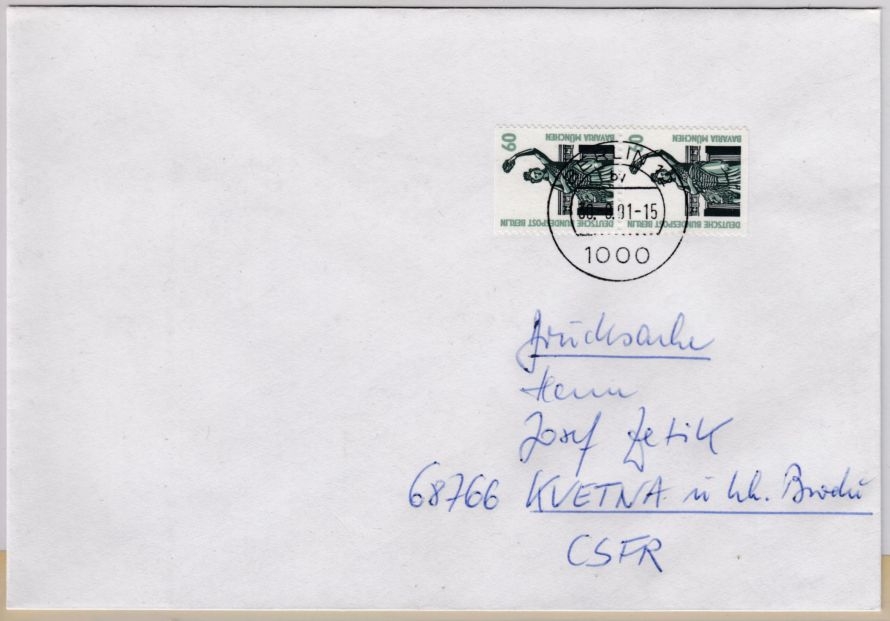 60
BAVARIA MÜNCHEN
DEUTSCHE BUNDESPOST BERLIN
60
BAVARIA MÜNCHEN
DEUTSCHE BUNDESPOST BERLIN
BERLIN
91-15
1000
Drucksache
Herrn
Josef Zetik
68766 KVETNA u Uh. Brodu
CSFR